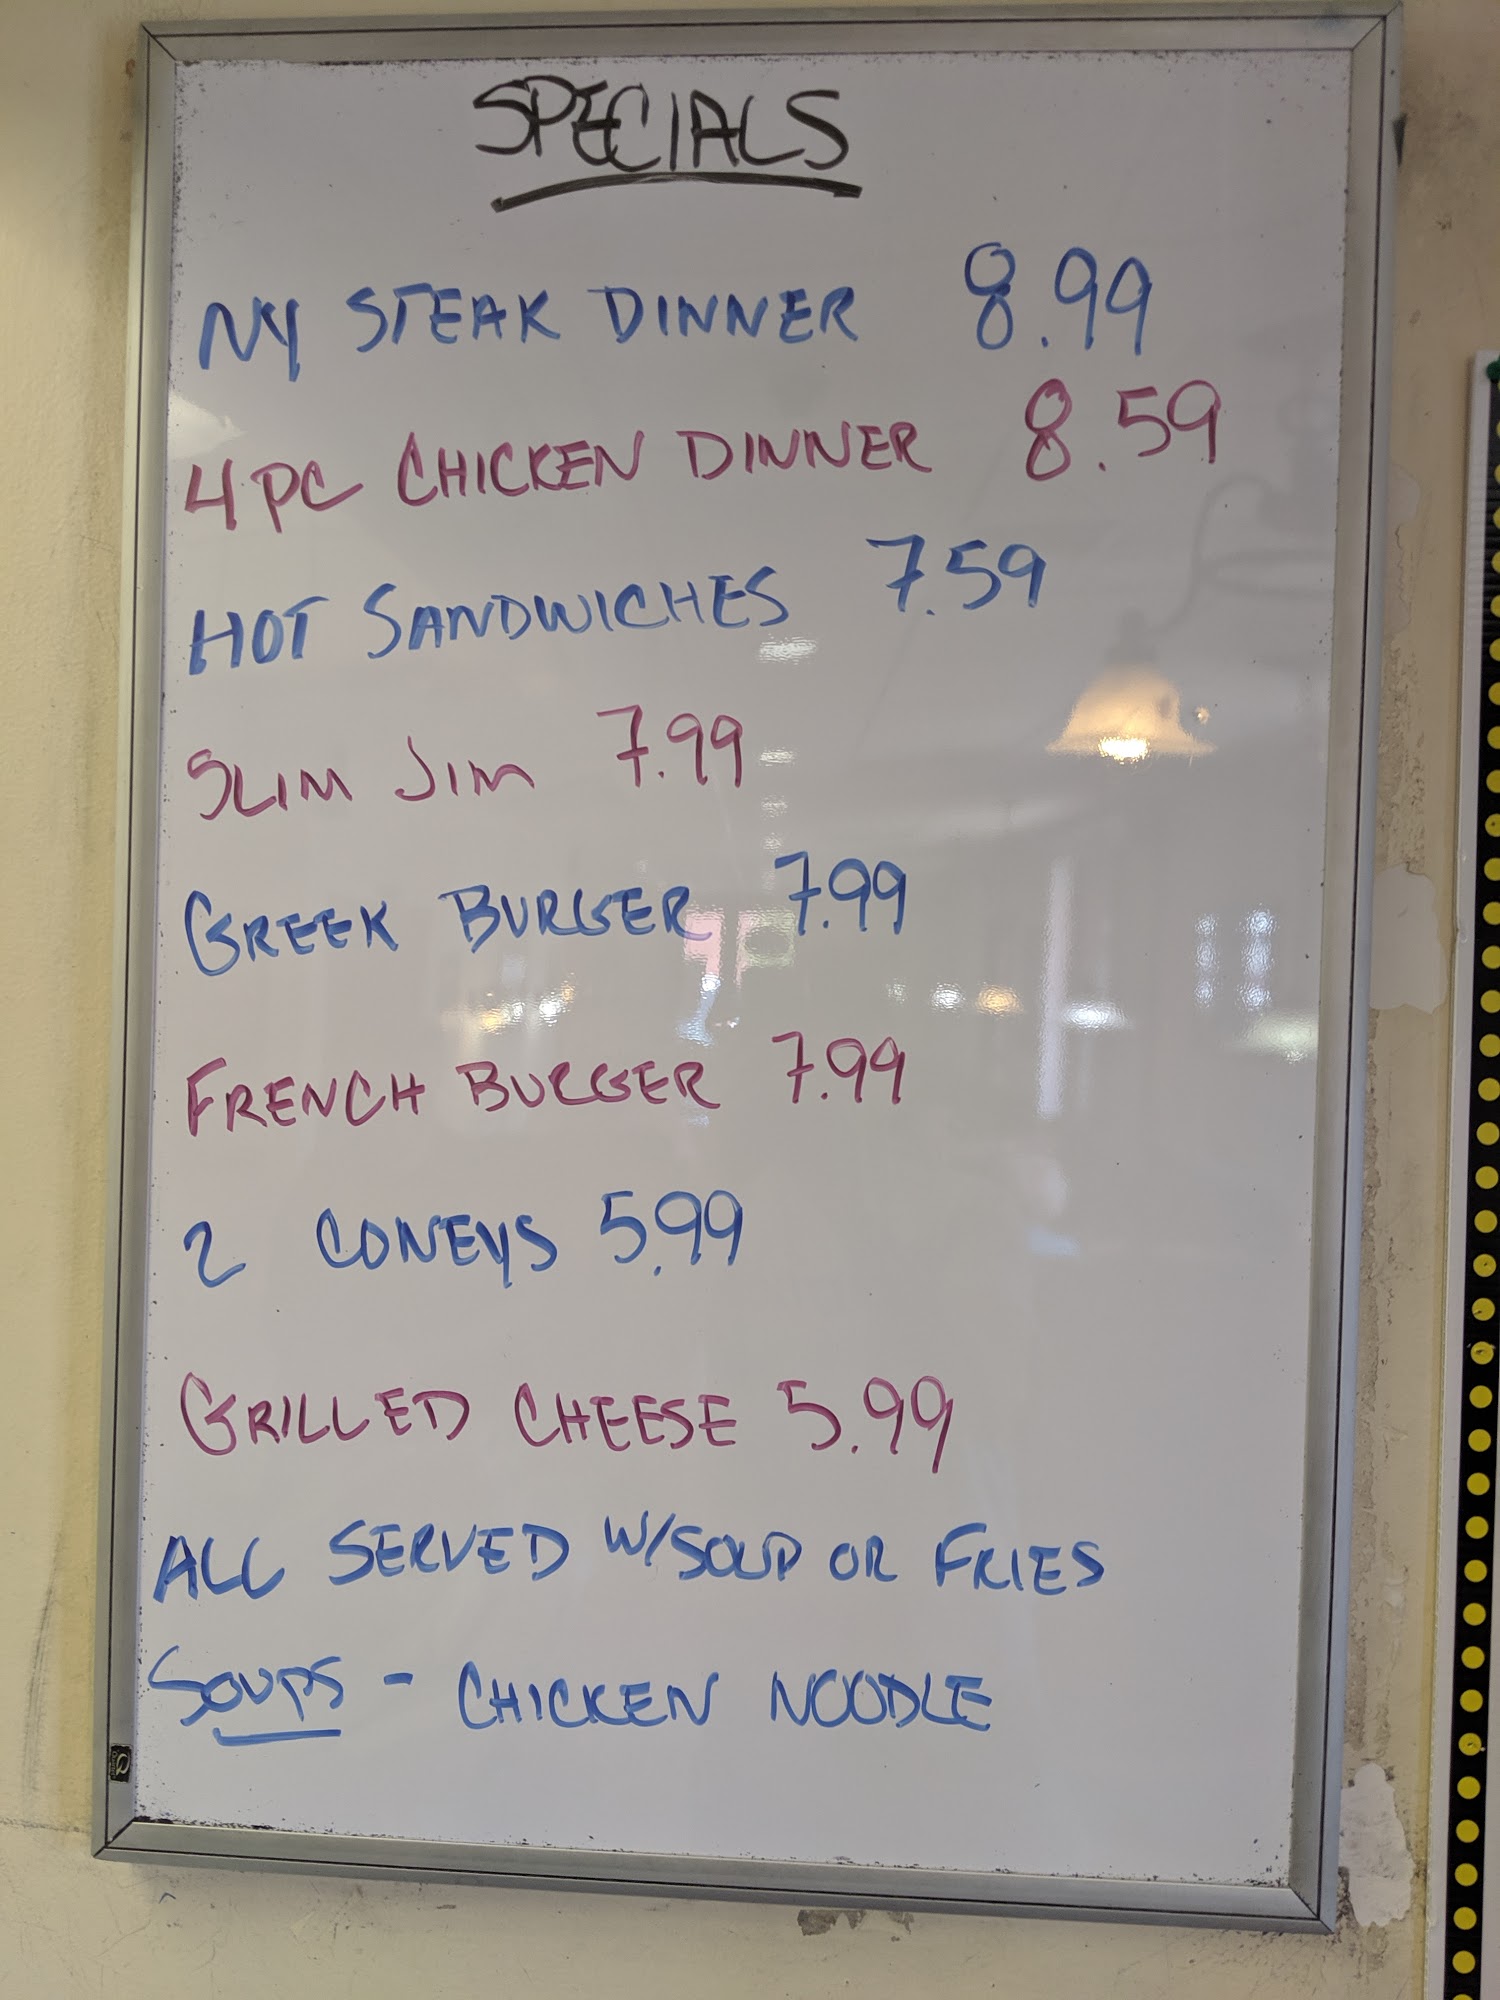 SPECIALS
NY STEAK DINNER 8.99
4 PC CHICKEN DINNER 8.59
HOT SANDWICHES 7.59
SLIM JIM 7.99
GREEK BURGER 7.99
FRENCH BURGER 7.99
2 CONEYS 5.99
GRILLED CHEESE 5.99
ALL SERVED W/SOUP OR FRIES
SOUPS - CHICKEN NOODLE